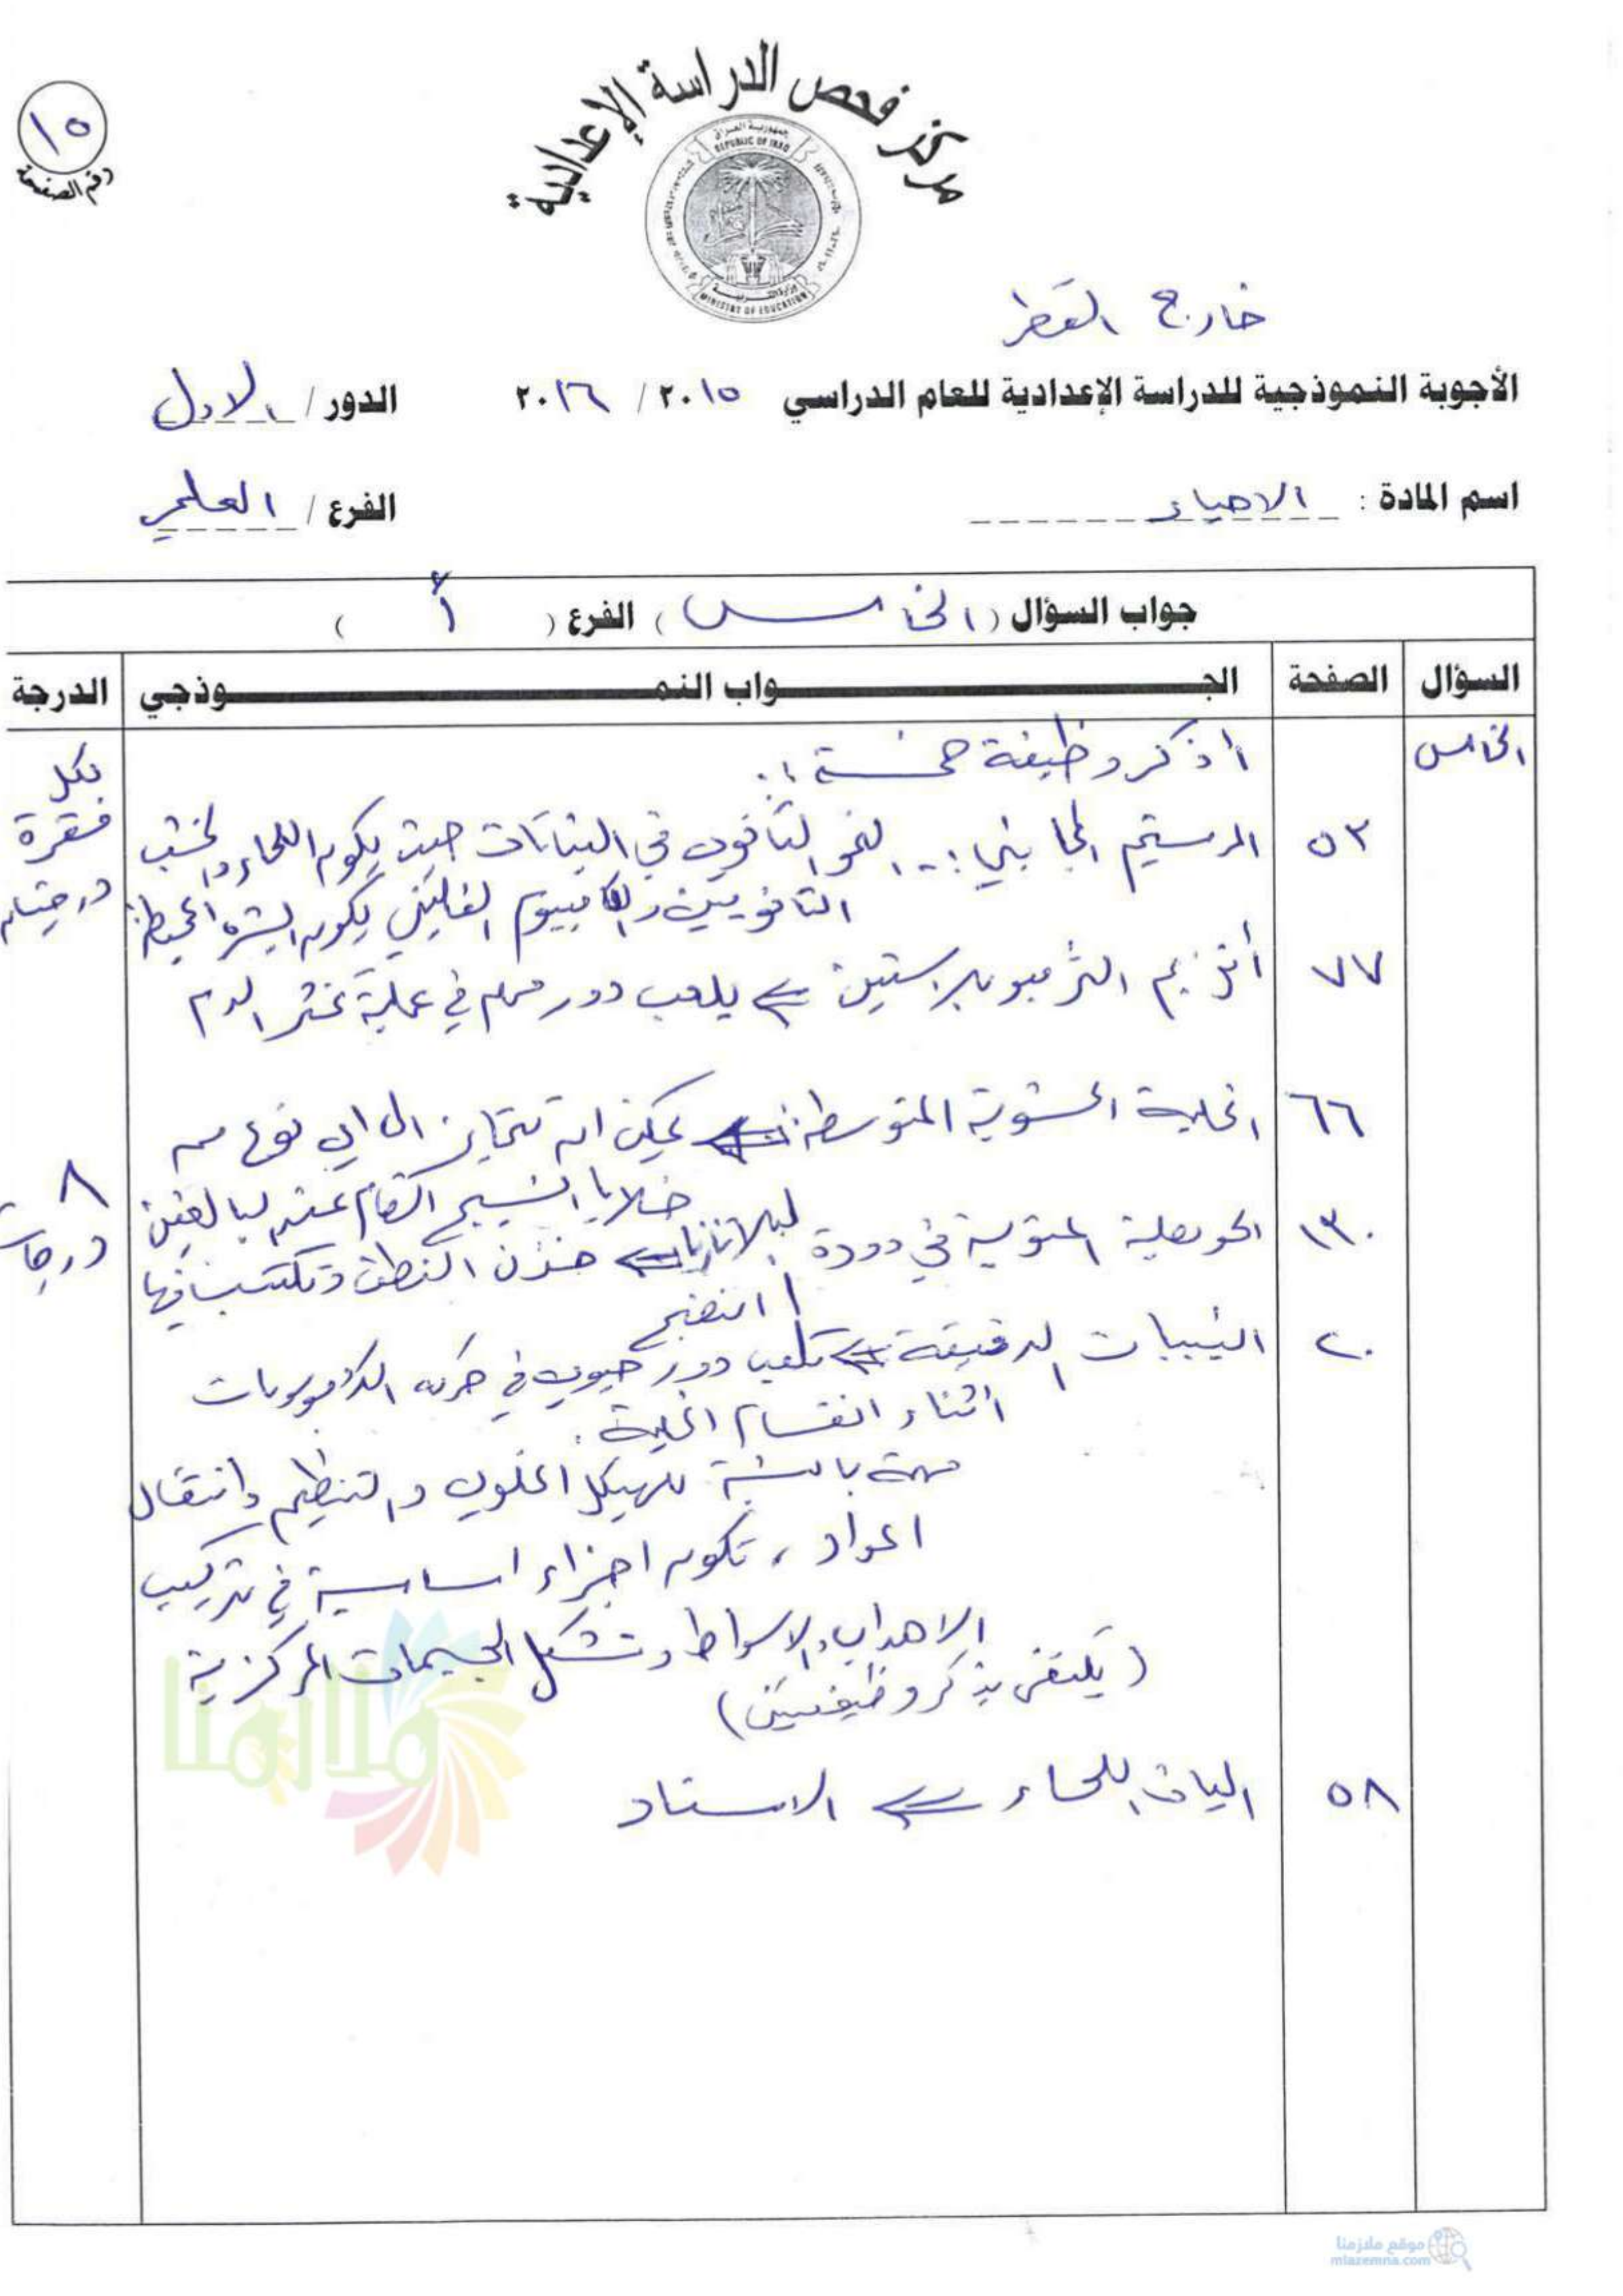 ١٥
رقم الصفحة
مركز فحص الدراسة الإعدادية
جمهورية العراق
REPUBLIC OF IRAQ
وزارة التربية
MINISTRY OF EDUCATION
خارج القطر
الأجوبة النموذجية للدراسة الإعدادية للعام الدراسي ٢٠١٥ / ٢٠١٦ الدور / الاول
اسم المادة : الاحياء الفرع / العلمي
جواب السؤال ( الخامس ) الفرع ( أ )
السؤال الصفحة الجـواب النمـوذجي الدرجة
الخامس أذكر وظيفة خمسة :. لكل
٥٣ المرستيم الجانبي :- النمو الثانوي في النباتات حيث يكون اللحاء والخشب فقرة
الثانويين والكامبيوم الفليني يكون البشرة المحيطة درجتان
٧٧ أنزيم الثرمبوبلاستين ⇐ يلعب دور مهم في عملية تخثر الدم
٦٦ الخلية الحشوية المتوسطة ⇐ يمكن ان تتمايز الى اي نوع من
خلايا النسيج الضام عند البالغين ٨
١٣٠ الحويصلة المنوية في دودة البلاناريا ⇐ خزن النطف وتكتسب فيها درجات
النضج
٢٠ النبيبات الدقيقة ⇐ تلعب دور حيوي في حركة الكروموسومات
أثناء انقسام الخلية .
مهمة بالنسبة للهيكل الخلوي والتنظيم وانتقال
المواد ، تكون اجزاء اساسية في تركيب
الاهداب والاسواط وتشكل الجسيمات المركزية
(يكتفى بذكر وظيفتين)
٥٨ الياف اللحاء ⇐ الاسناد
ملازمنا
موقع ملازمنا
mlazemna.com